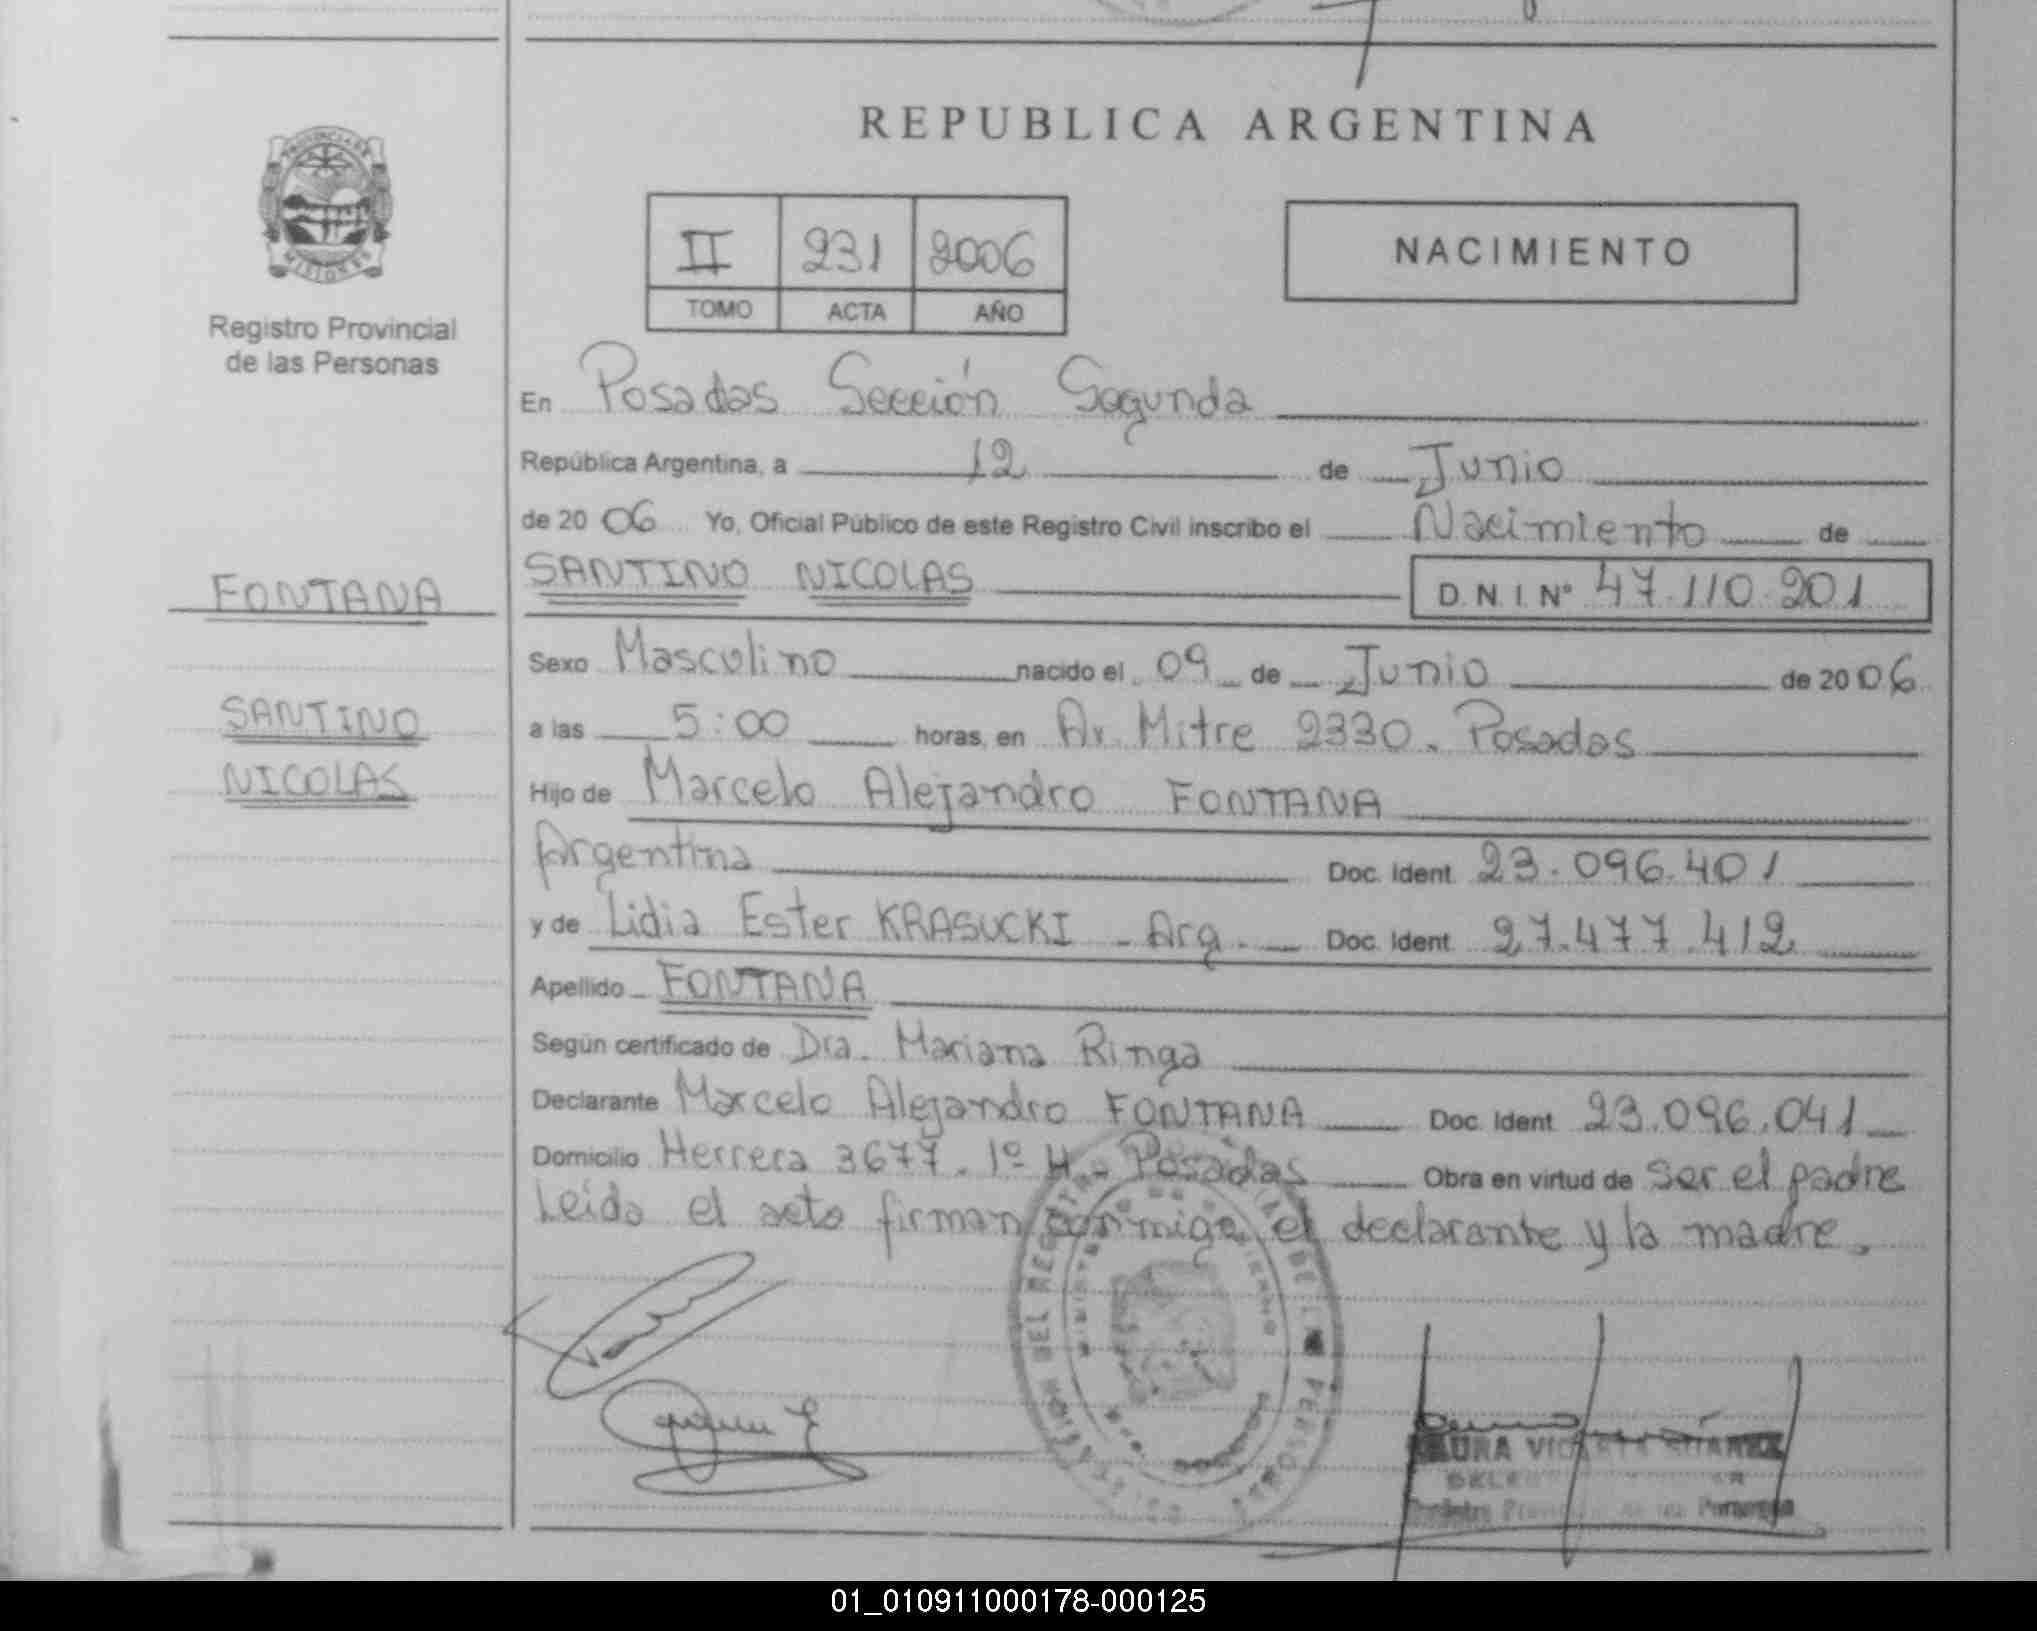 REPUBLICA ARGENTINA
PROVINCIA DE
MISIONES
Registro Provincial
de las Personas
II 231 2006
TOMO ACTA AÑO
NACIMIENTO
En Posadas Sección Segunda
República Argentina, a 12 de Junio
de 2006 Yo, Oficial Público de este Registro Civil inscribo el Nacimiento de
FONTANA
SANTINO NICOLAS D.N.I. N° 47.110.201
Sexo Masculino nacido el 09 de Junio de 2006
SANTINO
a las 5:00 horas, en Av. Mitre 2330. Posadas
NICOLAS
Hijo de Marcelo Alejandro FONTANA
Argentina Doc. Ident. 23.096.401
y de Lidia Ester KRASUCKI - Arg. Doc. Ident. 27.477.412
Apellido FONTANA
Según certificado de Dra. Mariana Ringa
Declarante Marcelo Alejandro FONTANA Doc. Ident. 23.096.041
Domicilio Herrera 3677. 1º H. Posadas Obra en virtud de ser el padre
Leida el acta firman conmigo el declarante y la madre.
DEL REGISTRO
PERSONAS
SUAREZ
Registro de las Personas
01_010911000178-000125